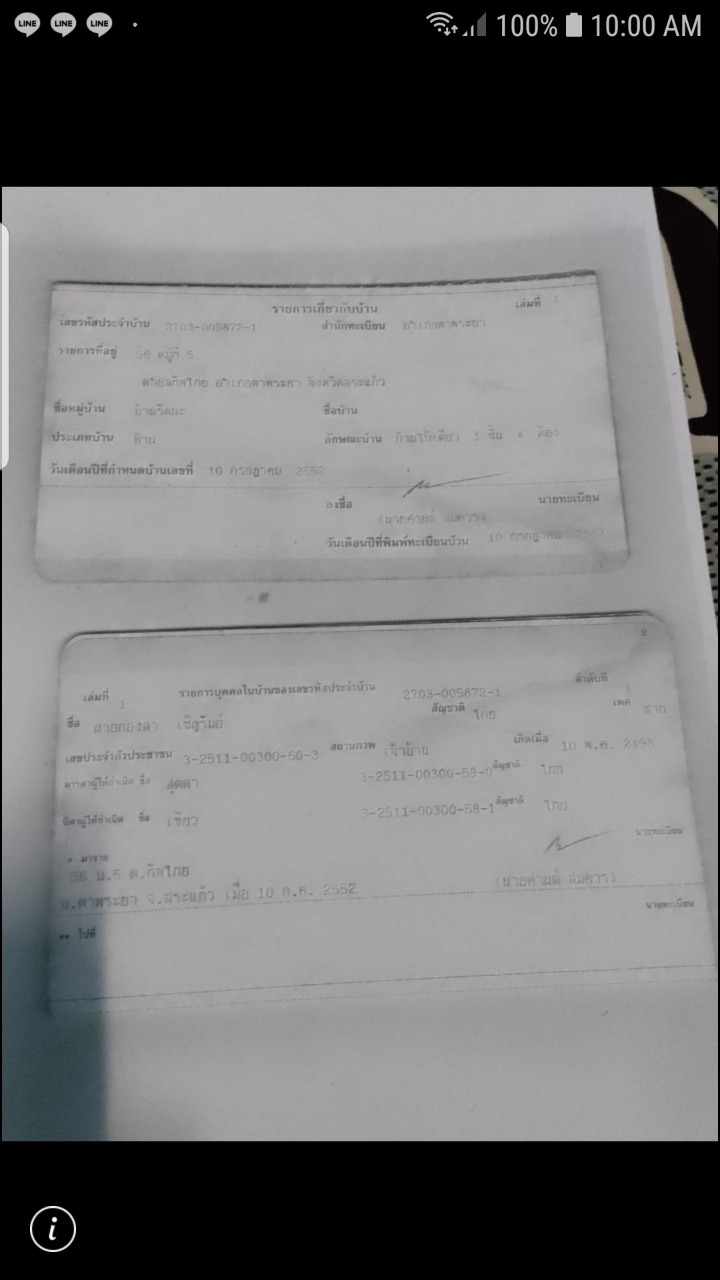 LINE LINE LINE 100% 10:00 AM
รายการเกี่ยวกับบ้าน เล่มที่ 1
เลขรหัสประจำบ้าน 2703-005872-1 สำนักทะเบียน อำเภอตาพระยา
รายการที่อยู่ 56 หมู่ที่ 5
ตำบลทัพไทย อำเภอตาพระยา จังหวัดสระแก้ว
ชื่อหมู่บ้าน ชื่อบ้าน
ประเภทบ้าน บ้าน ลักษณะบ้าน บ้านไม้เดี่ยว 1 ชั้น 4 ห้อง
วันเดือนปีที่กำหนดบ้านเลขที่ 10 กรกฎาคม 2552
ลงชื่อ นายทะเบียน
วันเดือนปีที่พิมพ์ทะเบียนบ้าน 10 กรกฎาคม 2552
1
2
เล่มที่ 1 รายการบุคคลในบ้านของเลขรหัสประจำบ้าน 2703-005872-1 ลำดับที่ 1
ชื่อ นายทองสา สัญชาติ ไทย เพศ ชาย
เลขประจำตัวประชาชน 3-2511-00300-60-3 สถานภาพ เจ้าบ้าน เกิดเมื่อ 10 พ.ค.
มารดาผู้ให้กำเนิด ชื่อ สุดตา 3-2511-00300-59-0 สัญชาติ ไทย
บิดาผู้ให้กำเนิด ชื่อ เขียว 3-2511-00300-58-1 สัญชาติ ไทย
* มาจาก นายทะเบียน
56 ม.5 ต.ทัพไทย
อ.ตาพระยา จ.สระแก้ว เมื่อ 10 ก.ค. 2552
นายทะเบียน
** ไปที่